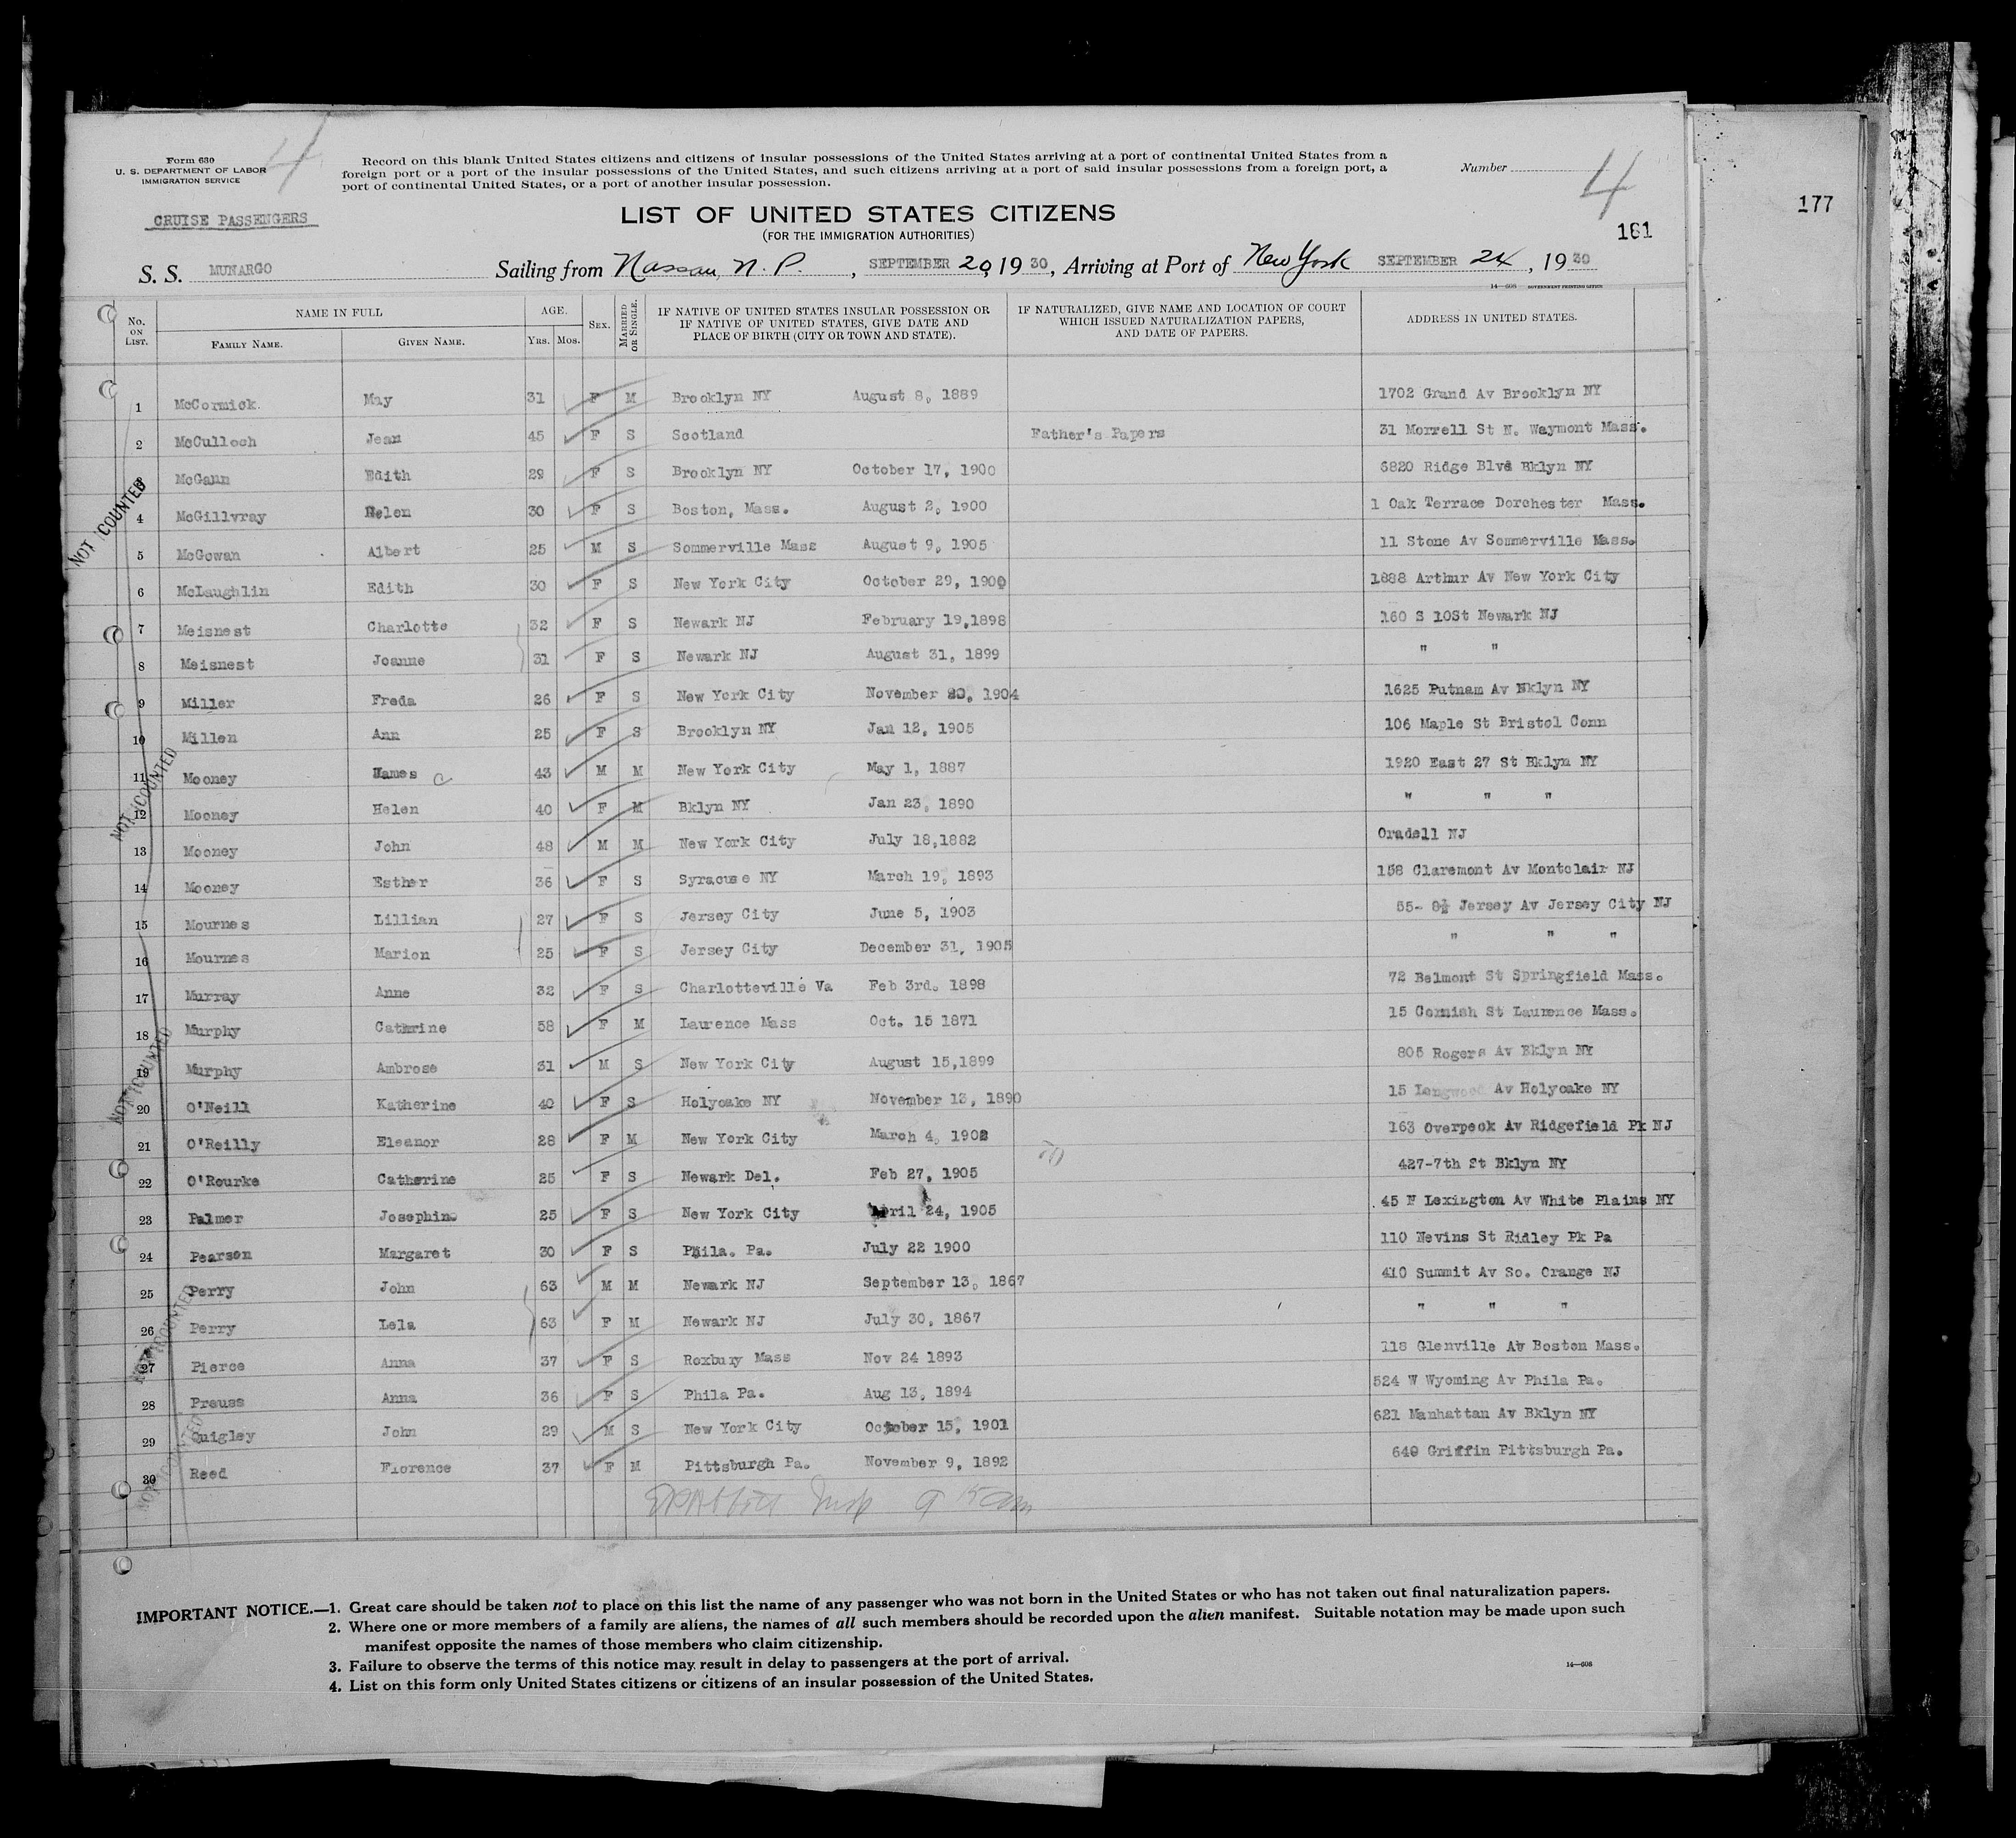 Form 630
U. S. DEPARTMENT OF LABOR
IMMIGRATION SERVICE
4
Record on this blank United States citizens and citizens of insular possessions of the United States arriving at a port of continental United States from a
foreign port or a port of the insular possessions of the United States, and such citizens arriving at a port of said insular possessions from a foreign port, a
port of continental United States, or a port of another insular possession.
Number 4
CRUISE PASSENGERS
LIST OF UNITED STATES CITIZENS
(FOR THE IMMIGRATION AUTHORITIES)
177
181
S. S. MUNARGO Sailing from Nassau, N. P., SEPTEMBER 20, 1930, Arriving at Port of New York SEPTEMBER 24, 1930
14—608 GOVERNMENT PRINTING OFFICE
No. ON LIST. NAME IN FULL FAMILY NAME. GIVEN NAME. AGE. YRS. MOS. SEX. MARRIED OR SINGLE. IF NATIVE OF UNITED STATES INSULAR POSSESSION OR IF NATIVE OF UNITED STATES, GIVE DATE AND PLACE OF BIRTH (CITY OR TOWN AND STATE). IF NATURALIZED, GIVE NAME AND LOCATION OF COURT WHICH ISSUED NATURALIZATION PAPERS, AND DATE OF PAPERS. ADDRESS IN UNITED STATES.
1 McCormick May 31 F M Brooklyn NY August 8, 1889 1702 Grand Av Brooklyn NY
2 McCulloch Jean 45 F S Scotland Father's Papers 31 Morrell St N. Waymont Mass.
3 McGann Edith 29 F S Brooklyn NY October 17, 1900 6820 Ridge Blvd Bklyn NY
4 McGillvray Helen 30 F S Boston, Mass. August 2, 1900 1 Oak Terrace Dorchester Mass.
5 McGowan Albert 25 M S Sommerville Mass August 9, 1905 11 Stone Av Sommerville Mass.
6 McLaughlin Edith 30 F S New York City October 29, 1900 1888 Arthur Av New York City
7 Meisnest Charlotte 32 F S Newark NJ February 19,1898 160 S 10St Newark NJ
8 Meisnest Joanne 31 F S Newark NJ August 31, 1899 " "
9 Miller Freda 26 F S New York City November 20, 1904 1625 Putnam Av Bklyn NY
10 Millen Ann 25 F S Brooklyn NY Jan 12, 1905 106 Maple St Bristol Conn
11 Mooney James C 43 M M New York City May 1, 1887 1920 East 27 St Bklyn NY
12 Mooney Helen 40 F M Bklyn NY Jan 23, 1890 " " "
13 Mooney John 48 M M New York City July 18,1882 Oradell NJ
14 Mooney Esther 36 F S Syracuse NY March 19, 1893 158 Claremont Av Montclair NJ
15 Mournes Lillian 27 F S Jersey City June 5, 1903 55- 8½ Jersey Av Jersey City NJ
16 Mournes Marion 25 F S Jersey City December 31, 1905 " " "
17 Murray Anne 32 F S Charlotteville Va Feb 3rd. 1898 72 Belmont St Springfield Mass.
18 Murphy Cathrine 58 F M Laurence Mass Oct. 15 1871 15 Cornish St Laurence Mass.
19 Murphy Ambrose 31 M S New York City August 15,1899 805 Rogers Av Bklyn NY
20 O'Neill Katherine 40 F S Holyoake NY November 13, 1890 15 Longwood Av Holyoake NY
21 O'Reilly Eleanor 28 F M New York City March 4, 1902 163 Overpeck Av Ridgefield Pk NJ
22 O'Rourke Catherine 25 F S Newark Del. Feb 27, 1905 427-7th St Bklyn NY
23 Palmer Josephine 25 F S New York City April 24, 1905 45 N Lexington Av White Plains NY
24 Pearson Margaret 30 F S Phila. Pa. July 22 1900 110 Nevins St Ridley Pk Pa
25 Perry John 63 M M Newark NJ September 13, 1867 410 Summit Av So. Orange NJ
26 Perry Lela 63 F M Newark NJ July 30, 1867 " " "
27 Pierce Anna 37 F S Roxbury Mass Nov 24 1893 118 Glenville Av Boston Mass.
28 Preuss Anna 36 F S Phila Pa. Aug 13, 1894 524 W Wyoming Av Phila Pa.
29 Quigley John 29 M S New York City October 15, 1901 621 Manhattan Av Bklyn NY
30 Reed Florence 37 F M Pittsburgh Pa. November 9, 1892 640 Griffin Pittsburgh Pa.
NOT COUNTED
NOT COUNTED
NOT COUNTED
NOT COUNTED
NOT COUNTED
Insp 9 15 am
IMPORTANT NOTICE.—1. Great care should be taken not to place on this list the name of any passenger who was not born in the United States or who has not taken out final naturalization papers.
2. Where one or more members of a family are aliens, the names of all such members should be recorded upon the alien manifest. Suitable notation may be made upon such
manifest opposite the names of those members who claim citizenship.
3. Failure to observe the terms of this notice may result in delay to passengers at the port of arrival.
4. List on this form only United States citizens or citizens of an insular possession of the United States.
14—608